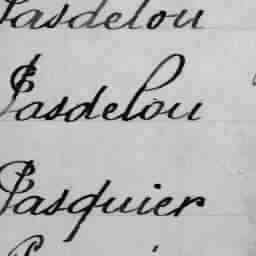 Pasdelou
Pasdelou
Pasquier